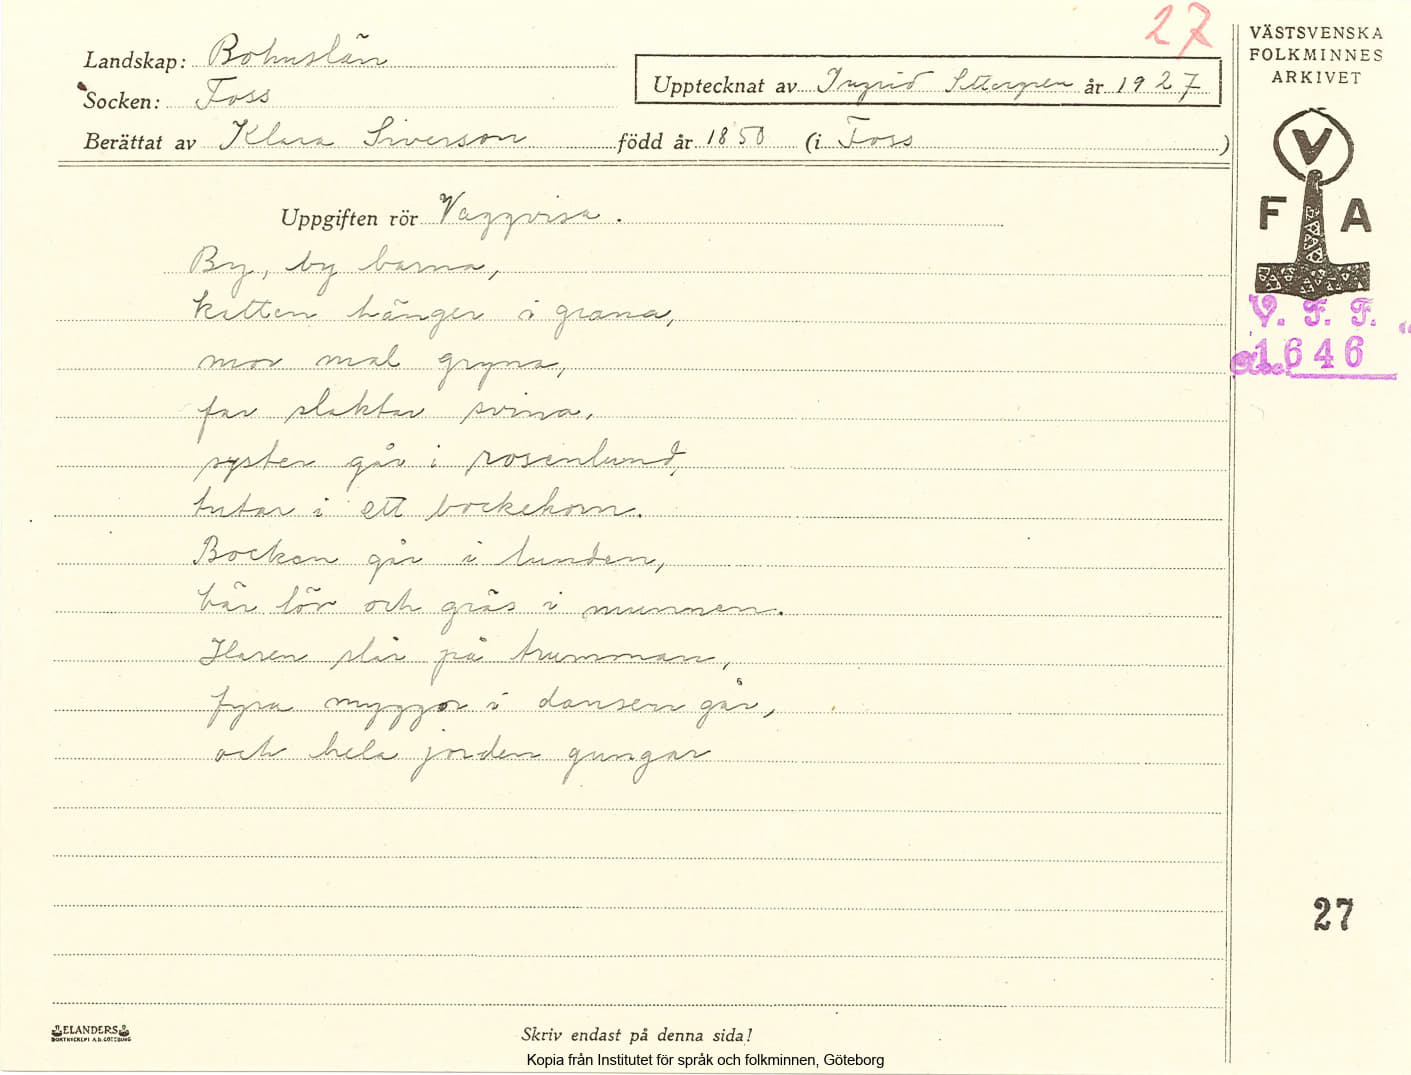 27
Landskap: Bohuslän
Socken: Foss
Upptecknat av Ingrid år 1927
Berättat av Klara Siverson född år 1850 (i Foss)
Uppgiften rör Vaggvisa.
By, by barna,
katten hänger i grana,
mor mal gryna,
far slaktar svina,
syster går i rosenlund,
tutar i ett bockehorn.
Bocken går i lunden,
bär löv och gräs i munnen.
Haren slår på trumman,
fyra myggor i dansen går,
och hela jorden gungar
VÄSTSVENSKA
FOLKMINNES
ARKIVET
V
F A
V. F. F.
1646
27
ELANDERS
Skriv endast på denna sida!
Kopia från Institutet för språk och folkminnen, Göteborg